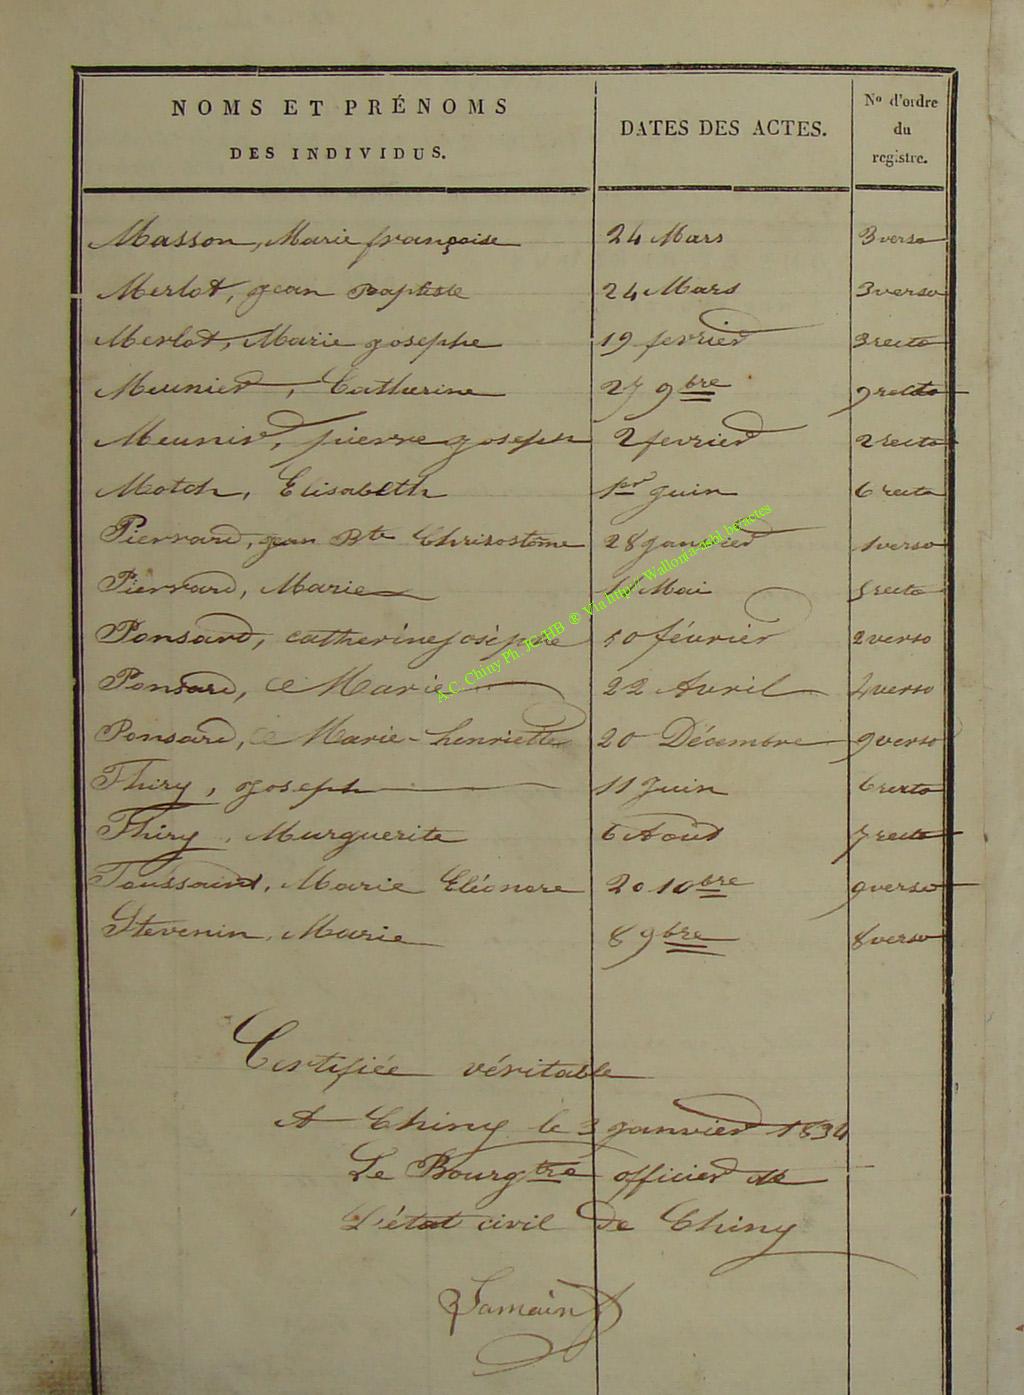 NOMS ET PRÉNOMS DES INDIVIDUS. DATES DES ACTES. No d'ordre du registre.
Masson, Marie françoise 24 Mars 3 verso
Merlot, jean Baptiste 24 Mars 3 verso
Merlot, Marie josephe 19 fevrier 3 recto
Meunier, Catherine 27 9bre 9 recto
Meunier, pierre joseph 2 fevrier 2 recto
Motch, Elisabeth 1er juin 6 recto
Pierrard, jean Bte Chrisostôme 28 janvier 1 verso
Pierrard, Marie 1r Mai 5 recto
Ponsard, catherine josèphe 10 février 2 verso
Ponsard, Marie 22 Avril 4 verso
Ponsard, Marie-henriette 20 Décembre 9 verso
Thiry, joseph 11 juin 6 recto
Thiry, Marguerite 6 Août 7 recto
Toussaint, Marie Eléonore 20 10bre 9 verso
Stevenin, Marie 8 9bre 8 verso
Certifiée véritable
A Chiny le 3 janvier 1834
Le Bourgtre officier de
L'état civil de Chiny
Jamain
A.C. Chiny Ph. JC HB ® Via http:// Wallonia-asbl.be/actes